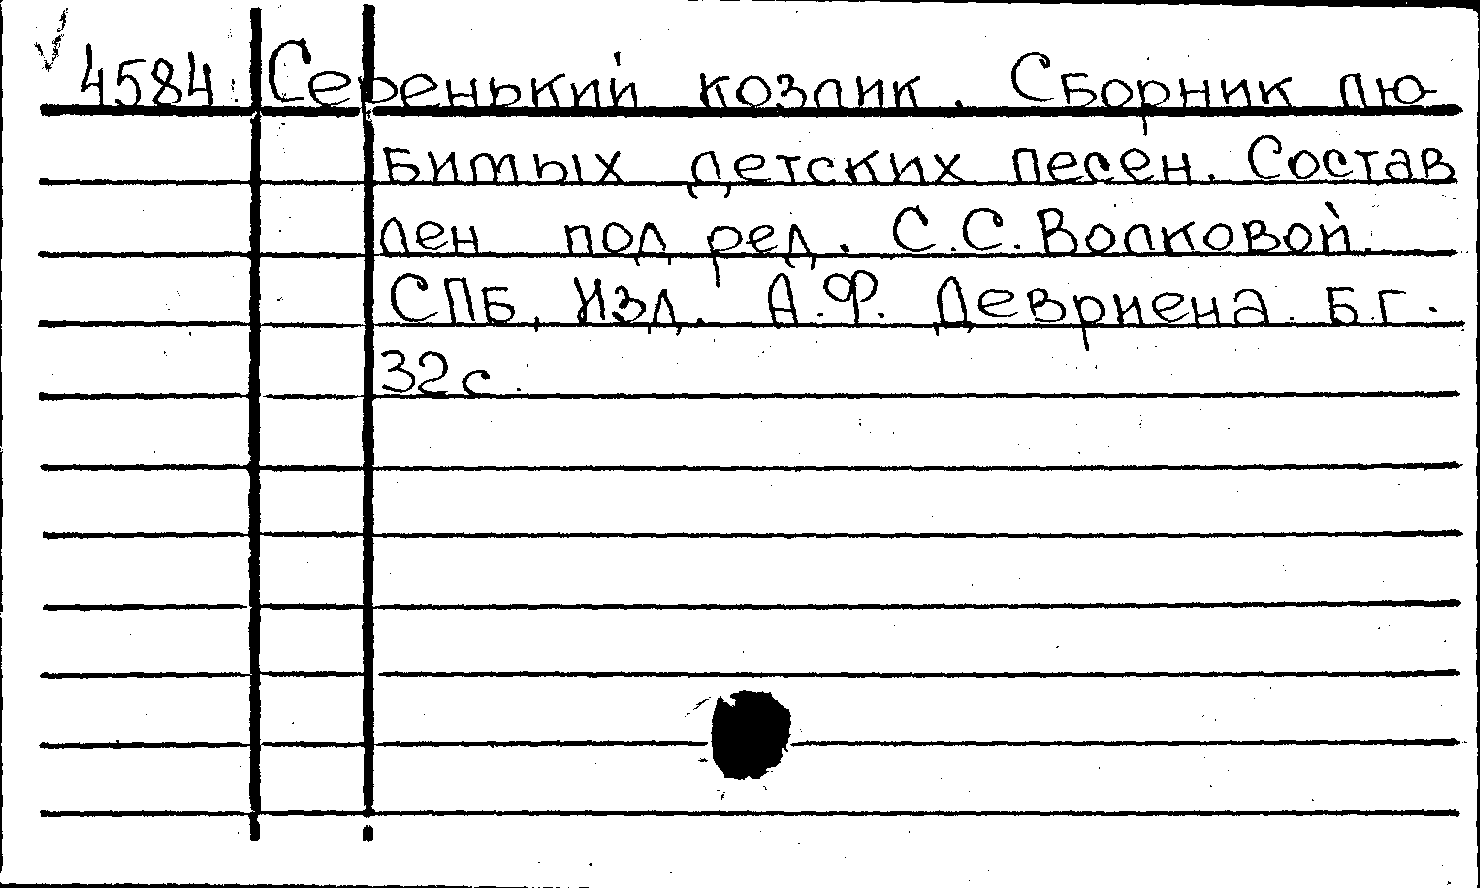 4584. Серенький козлик. Сборник лю-
бимых детских песен. Состав
лен под ред. С.С. Волковой.
СПБ. Изд. А.Ф. Девриена. Б.г.
32 с.